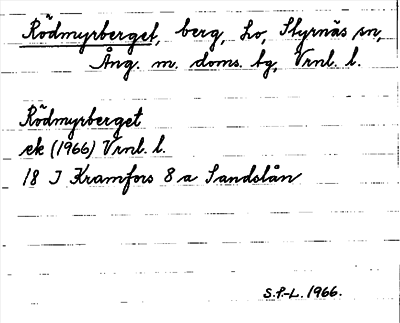 Rödmyrberget, berg, Lo, Styrnäs sn,
Ång. m. doms. tg, Vrnl. l.
Rödmyrberget
ek (1966) Vrnl. l.
18 I Kramfors 8 a Sandslån
S.P.-L. 1966.